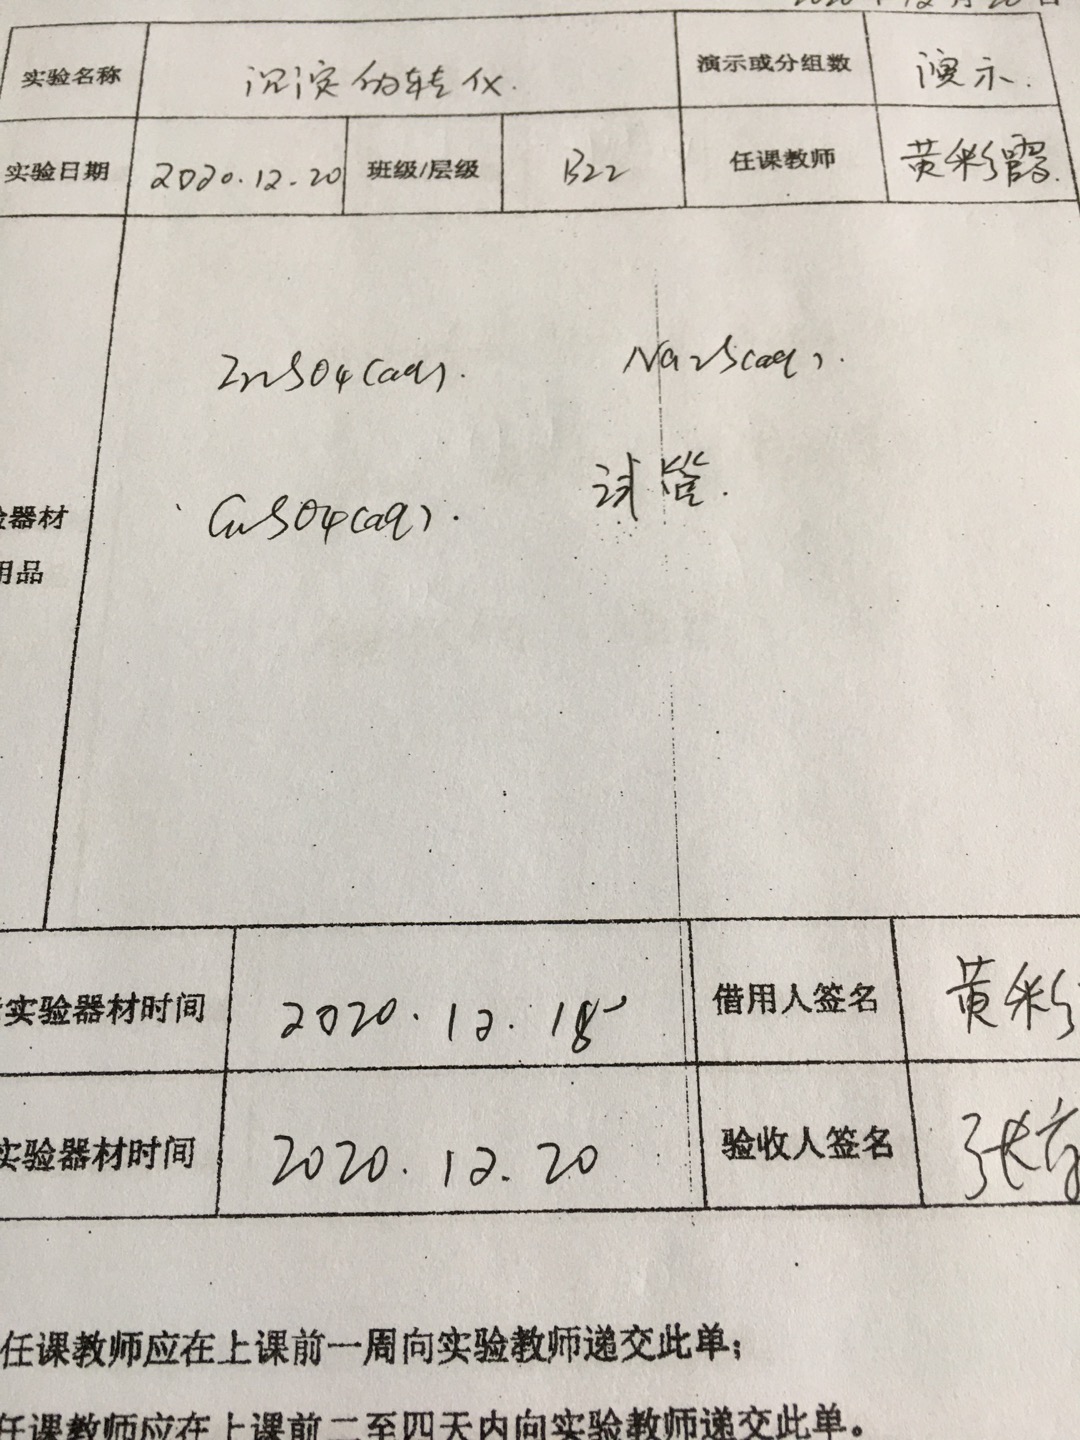 实验名称 沉淀的转化. 演示或分组数 演示.
实验日期 2020.12.20 班级/层级 B22 任课教师 黄彩霞.
ZnSO4(aq). Na2S(aq).
试管.
CuSO4(aq).
器材
用品
实验器材时间 2020.12.18 借用人签名 黄彩
实验器材时间 2020.12.20 验收人签名 张
任课教师应在上课前一周向实验教师递交此单；
任课教师应在上课前二至四天内向实验教师递交此单。